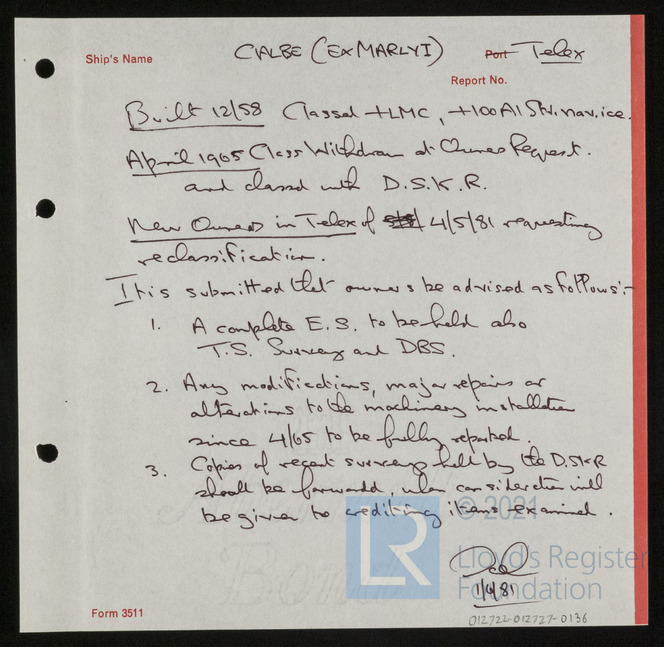 Ship's Name CALBE (EX MARLYI) Port Telex
Report No.
Built 12/58 Classed +LMC, +100A1 Str. nav. ice.
April 1965 Class Withdrawn at Owners Request.
and classed with D.S.K.R.
New Owners in Telex of 4/5/81 requesting
reclassification.
It is submitted that owners be advised as follows:-
1. A complete E.S. to be held also
T.S. Survey and DBS.
2. Any modifications, major repairs or
alterations to the machinery installation
since 4/65 to be fully reported.
3. Copies of recent surveys held by the D.S.K.R
should be forwarded, when consideration will
be given to crediting items examined.
LR © 2021
Lloyd's Register
Foundation
1/4/81
Form 3511
012722-012727-0136